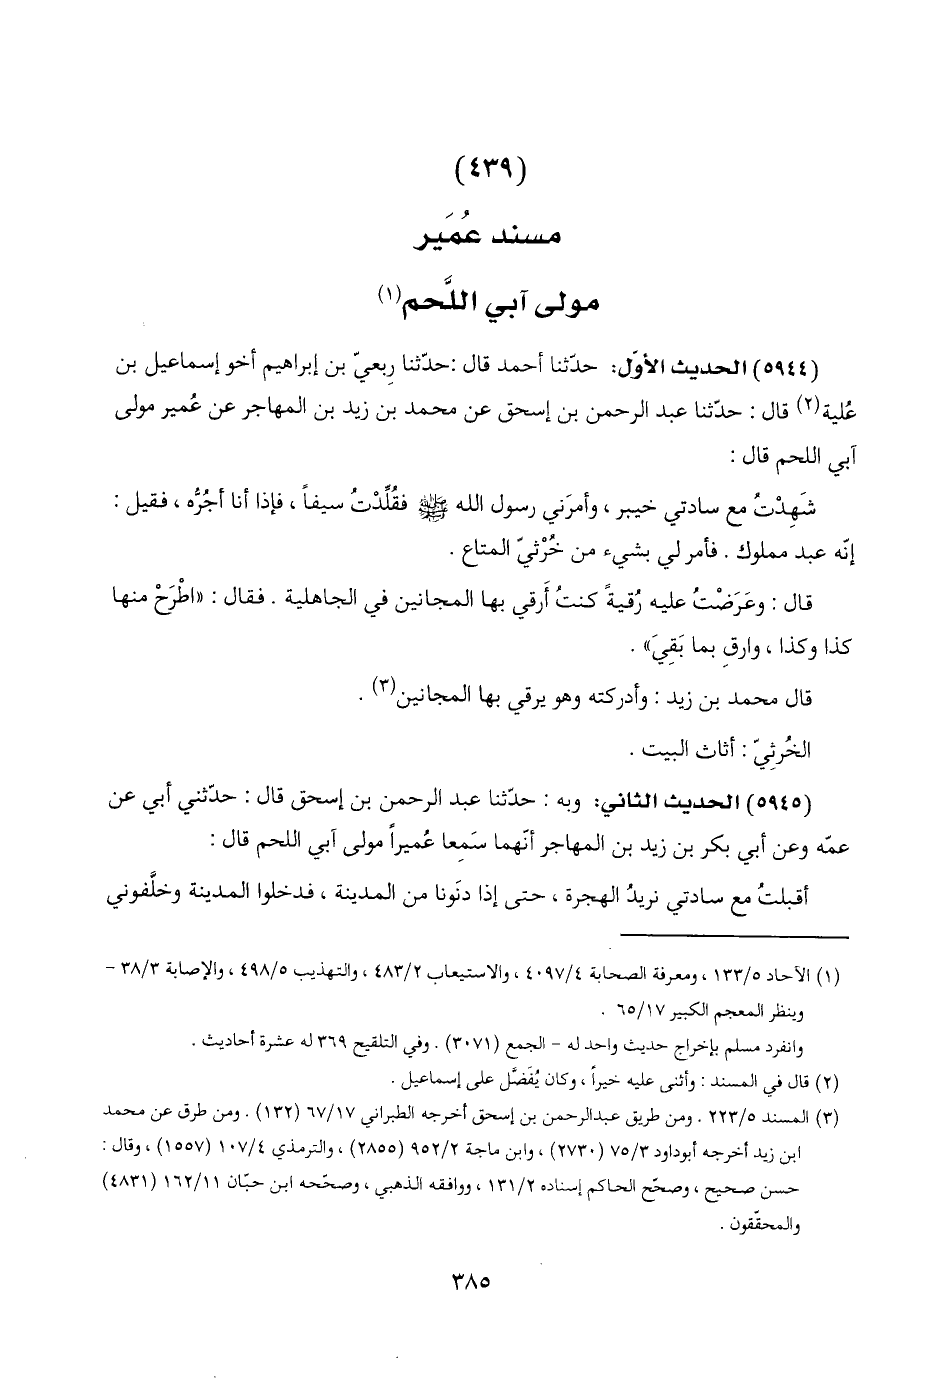 (٤٣٩)
مسند عُمَير
مولى آبي اللَّحم(١)
(٥٩٤٤) الحديث الأوّل: حدّثنا أحمد قال :حدّثنا رِبعيّ بن إبراهيم أخو إسماعيل بن
عُلية(٢) قال : حدّثنا عبد الرحمن بن إسحق عن محمد بن زيد بن المهاجر عن عُمير مولى
آبي اللحم قال :
شَهِدْتُ مع سادتي خيبر ، وأمرَني رسول الله ﷺ فقُلِّدْتُ سيفاً ، فإذا أنا أجُرُّه ، فقيل :
إنّه عبد مملوك . فأمر لي بشيء من خُرْثيّ المتاع .
قال : وعَرَضْتُ عليه رُقيةً كنتُ أَرقي بها المجانين في الجاهلية . فقال : «اطْرَحْ منها
كذا وكذا ، وارقِ بما بَقِيَ» .
قال محمد بن زيد : وأدركته وهو يرقي بها المجانين(٣) .
الخُرثِيّ : أثاث البيت .
(٥٩٤٥) الحديث الثاني: وبه : حدّثنا عبد الرحمن بن إسحق قال : حدّثني أبي عن
عمّه وعن أبي بكر بن زيد بن المهاجر أنّهما سَمِعا عُميراً مولى آبي اللحم قال :
أقبلتُ مع سادتي نريدُ الهجرة ، حتى إذا دنَونا من المدينة ، فدخلوا المدينة وخلَّفوني
(١) الآحاد ١٣٣/٥ ، ومعرفة الصحابة ٤٠٩٧/٤ ، والاستيعاب ٤٨٣/٢ ، والتهذيب ٤٩٨/٥ ، والإصابة ٣٨/٣ –
وينظر المعجم الكبير ٦٥/١٧ .
وانفرد مسلم بإخراج حديث واحد له – الجمع (٣٠٧١) . وفي التلقيح ٣٦٩ له عشرة أحاديث .
(٢) قال في المسند : وأثنى عليه خيراً ، وكان يُفَضَّل على إسماعيل .
(٣) المسند ٢٢٣/٥ . ومن طريق عبدالرحمن بن إسحق أخرجه الطبراني ٦٧/١٧ (١٣٢) . ومن طرق عن محمد
ابن زيد أخرجه أبوداود ٧٥/٣ (٢٧٣٠) ، وابن ماجة ٩٥٢/٢ (٢٨٥٥) ، والترمذي ١٠٧/٤ (١٥٥٧) ، وقال :
حسن صحيح ، وصحّح الحاكم إسناده ١٣١/٢ ، ووافقه الذهبي ، وصحّحه ابن حبّان ١٦٢/١١ (٤٨٣١)
والمحقّقون .
٣٨٥